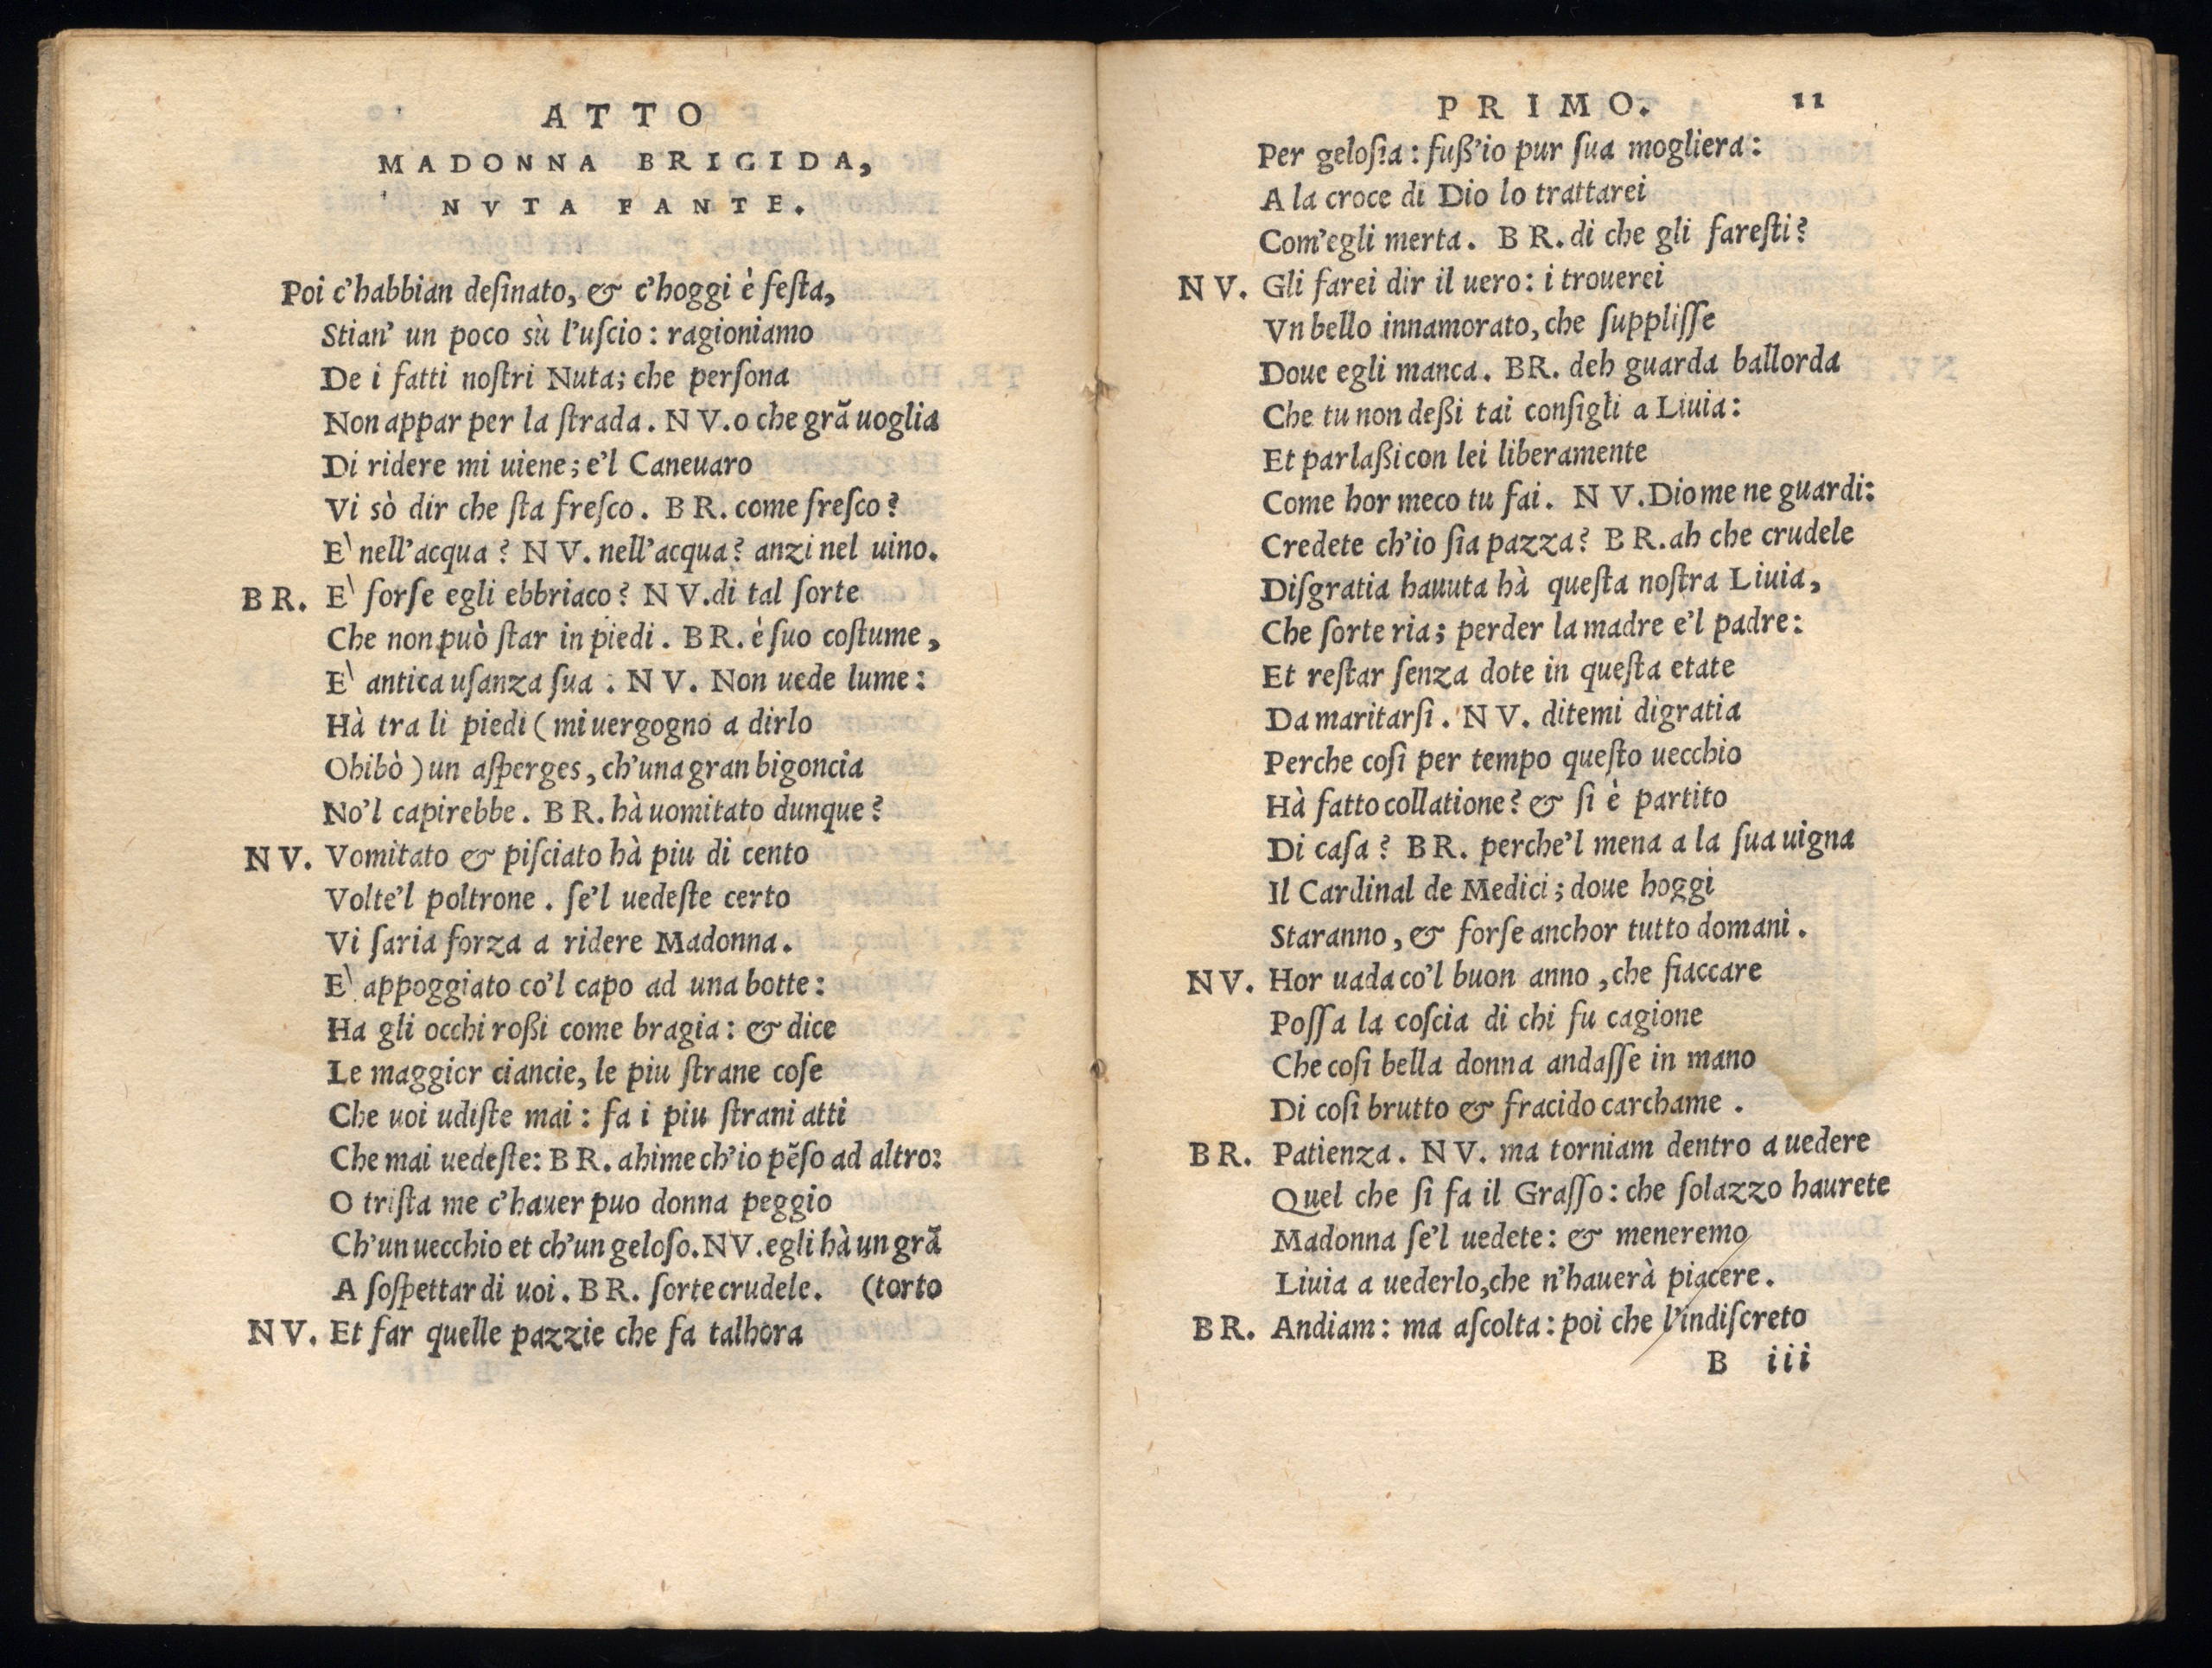 ATTO
MADONNA BRIGIDA,
NVTA FANTE.
Poi c'habbian deſinato, & c'hoggi è feſta,
Stian' un poco sù l'uſcio: ragioniamo
De i fatti noſtri Nuta; che perſona
Non appar per la ſtrada. NV. o che grã uoglia
Di ridere mi uiene; e'l Caneuaro
Vi sò dir che ſta freſco. BR. come freſco?
E' nell'acqua? NV. nell'acqua? anzi nel uino.
BR. E' forſe egli ebbriaco? NV. di tal ſorte
Che non può ſtar in piedi. BR. è ſuo coſtume,
E' antica uſanza ſua. NV. Non uede lume:
Hà tra li piedi (mi uergogno a dirlo
Ohibò) un aſperges, ch'una gran bigoncia
No'l capirebbe. BR. hà uomitato dunque?
NV. Vomitato & piſciato hà piu di cento
Volte'l poltrone. ſe'l uedeſte certo
Vi ſaria forza a ridere Madonna.
E' appoggiato co'l capo ad una botte:
Ha gli occhi roßi come bragia: & dice
Le maggior ciancie, le piu ſtrane coſe
Che uoi udiſte mai: fa i piu ſtrani atti
Che mai uedeſte: BR. ahime ch'io pẽſo ad altro:
O triſta me c'hauer puo donna peggio
Ch'un uecchio et ch'un geloſo. NV. egli hà un grã
A ſoſpettar di uoi. BR. ſorte crudele. (torto
NV. Et far quelle pazzie che fa talhora
PRIMO. 11
Per geloſia: fuß'io pur ſua mogliera:
A la croce di Dio lo trattarei
Com'egli merta. BR. di che gli fareſti?
NV. Gli farei dir il uero: i trouerei
Vn bello innamorato, che ſuppliſſe
Doue egli manca. BR. deh guarda ballorda
Che tu non deßi tai conſigli a Liuia:
Et parlaßi con lei liberamente
Come hor meco tu fai. NV. Dio me ne guardi:
Credete ch'io ſia pazza? BR. ah che crudele
Diſgratia hauuta hà queſta noſtra Liuia,
Che ſorte ria; perder la madre e'l padre:
Et reſtar ſenza dote in queſta etate
Da maritarſi. NV. ditemi digratia
Perche coſi per tempo queſto uecchio
Hà fatto collatione? & ſi è partito
Di caſa? BR. perche'l mena a la ſua uigna
Il Cardinal de Medici; doue hoggi
Staranno, & forſe anchor tutto domani.
NV. Hor uada co'l buon anno, che fiaccare
Poſſa la coſcia di chi fu cagione
Che coſi bella donna andaſſe in mano
Di coſi brutto & fracido carchame.
BR. Patienza. NV. ma torniam dentro a uedere
Quel che ſi fa il Graſſo: che ſolazzo haurete
Madonna ſe'l uedete: & meneremo
Liuia a uederlo, che n'hauerà piacere.
BR. Andiam: ma aſcolta: poi che l'indiſcreto
B iii